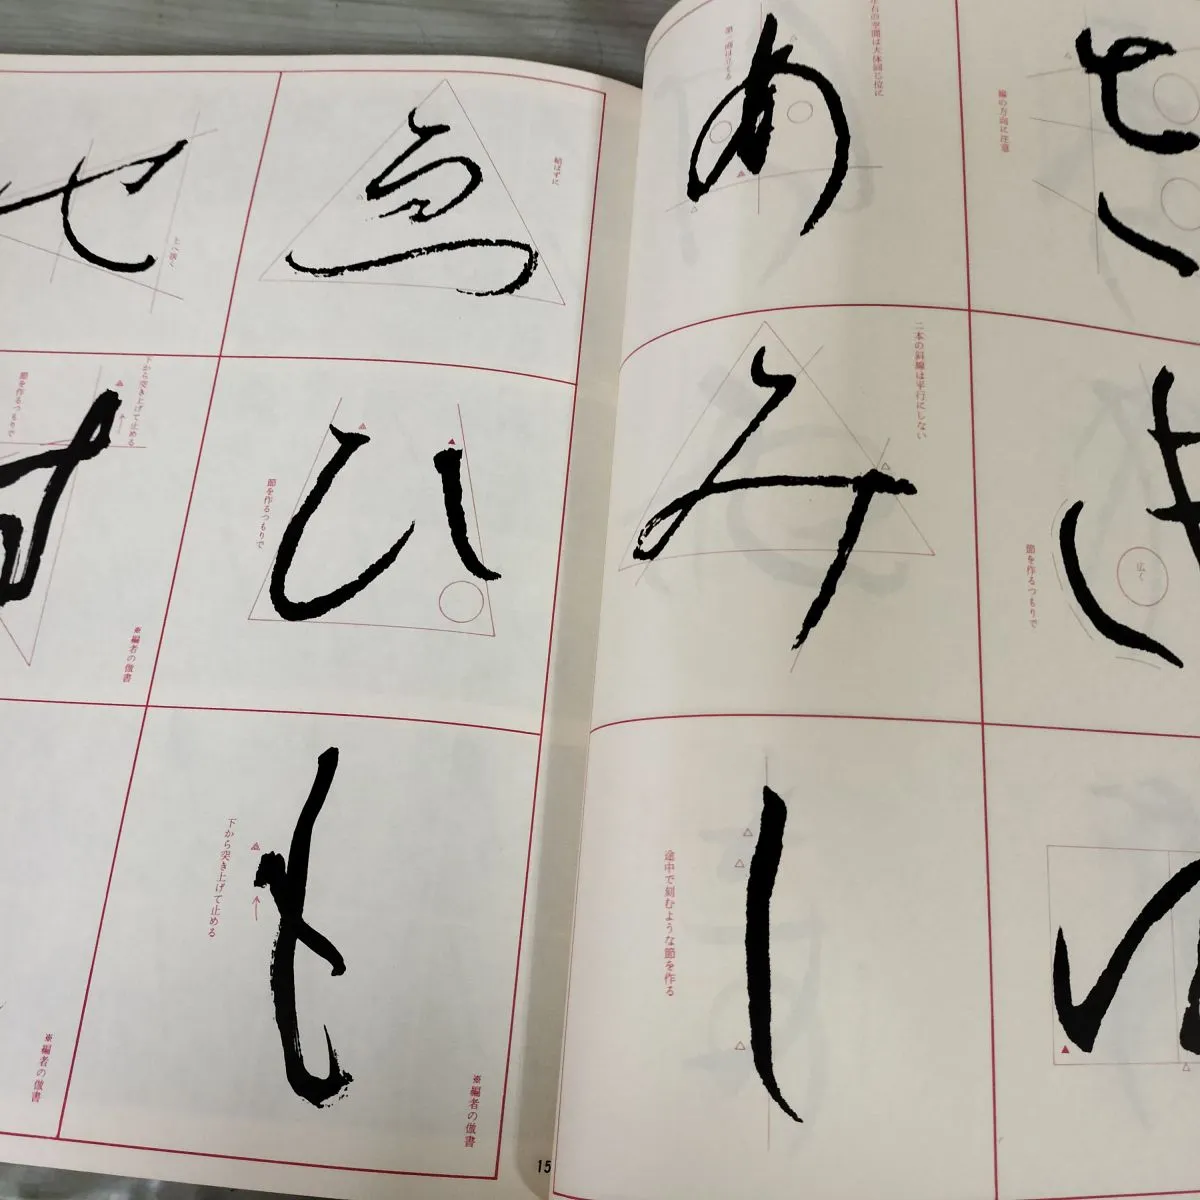 さ
線の方向に注意
き
広く
節を作るつもりで
ゆ
左右の空間は大体同じ位に
め
第一画は立てる
二本の斜線は平行にしない
み
し
途中で刻むような節を作る
結ばずに
ゑ
ひ
節を作るつもりで
も
下から突き上げて止める
※編者の倣書
上へ強く
せ
下から突き上げて止める
す
節を作るつもりで
※編者の倣書
※編者の倣書
15